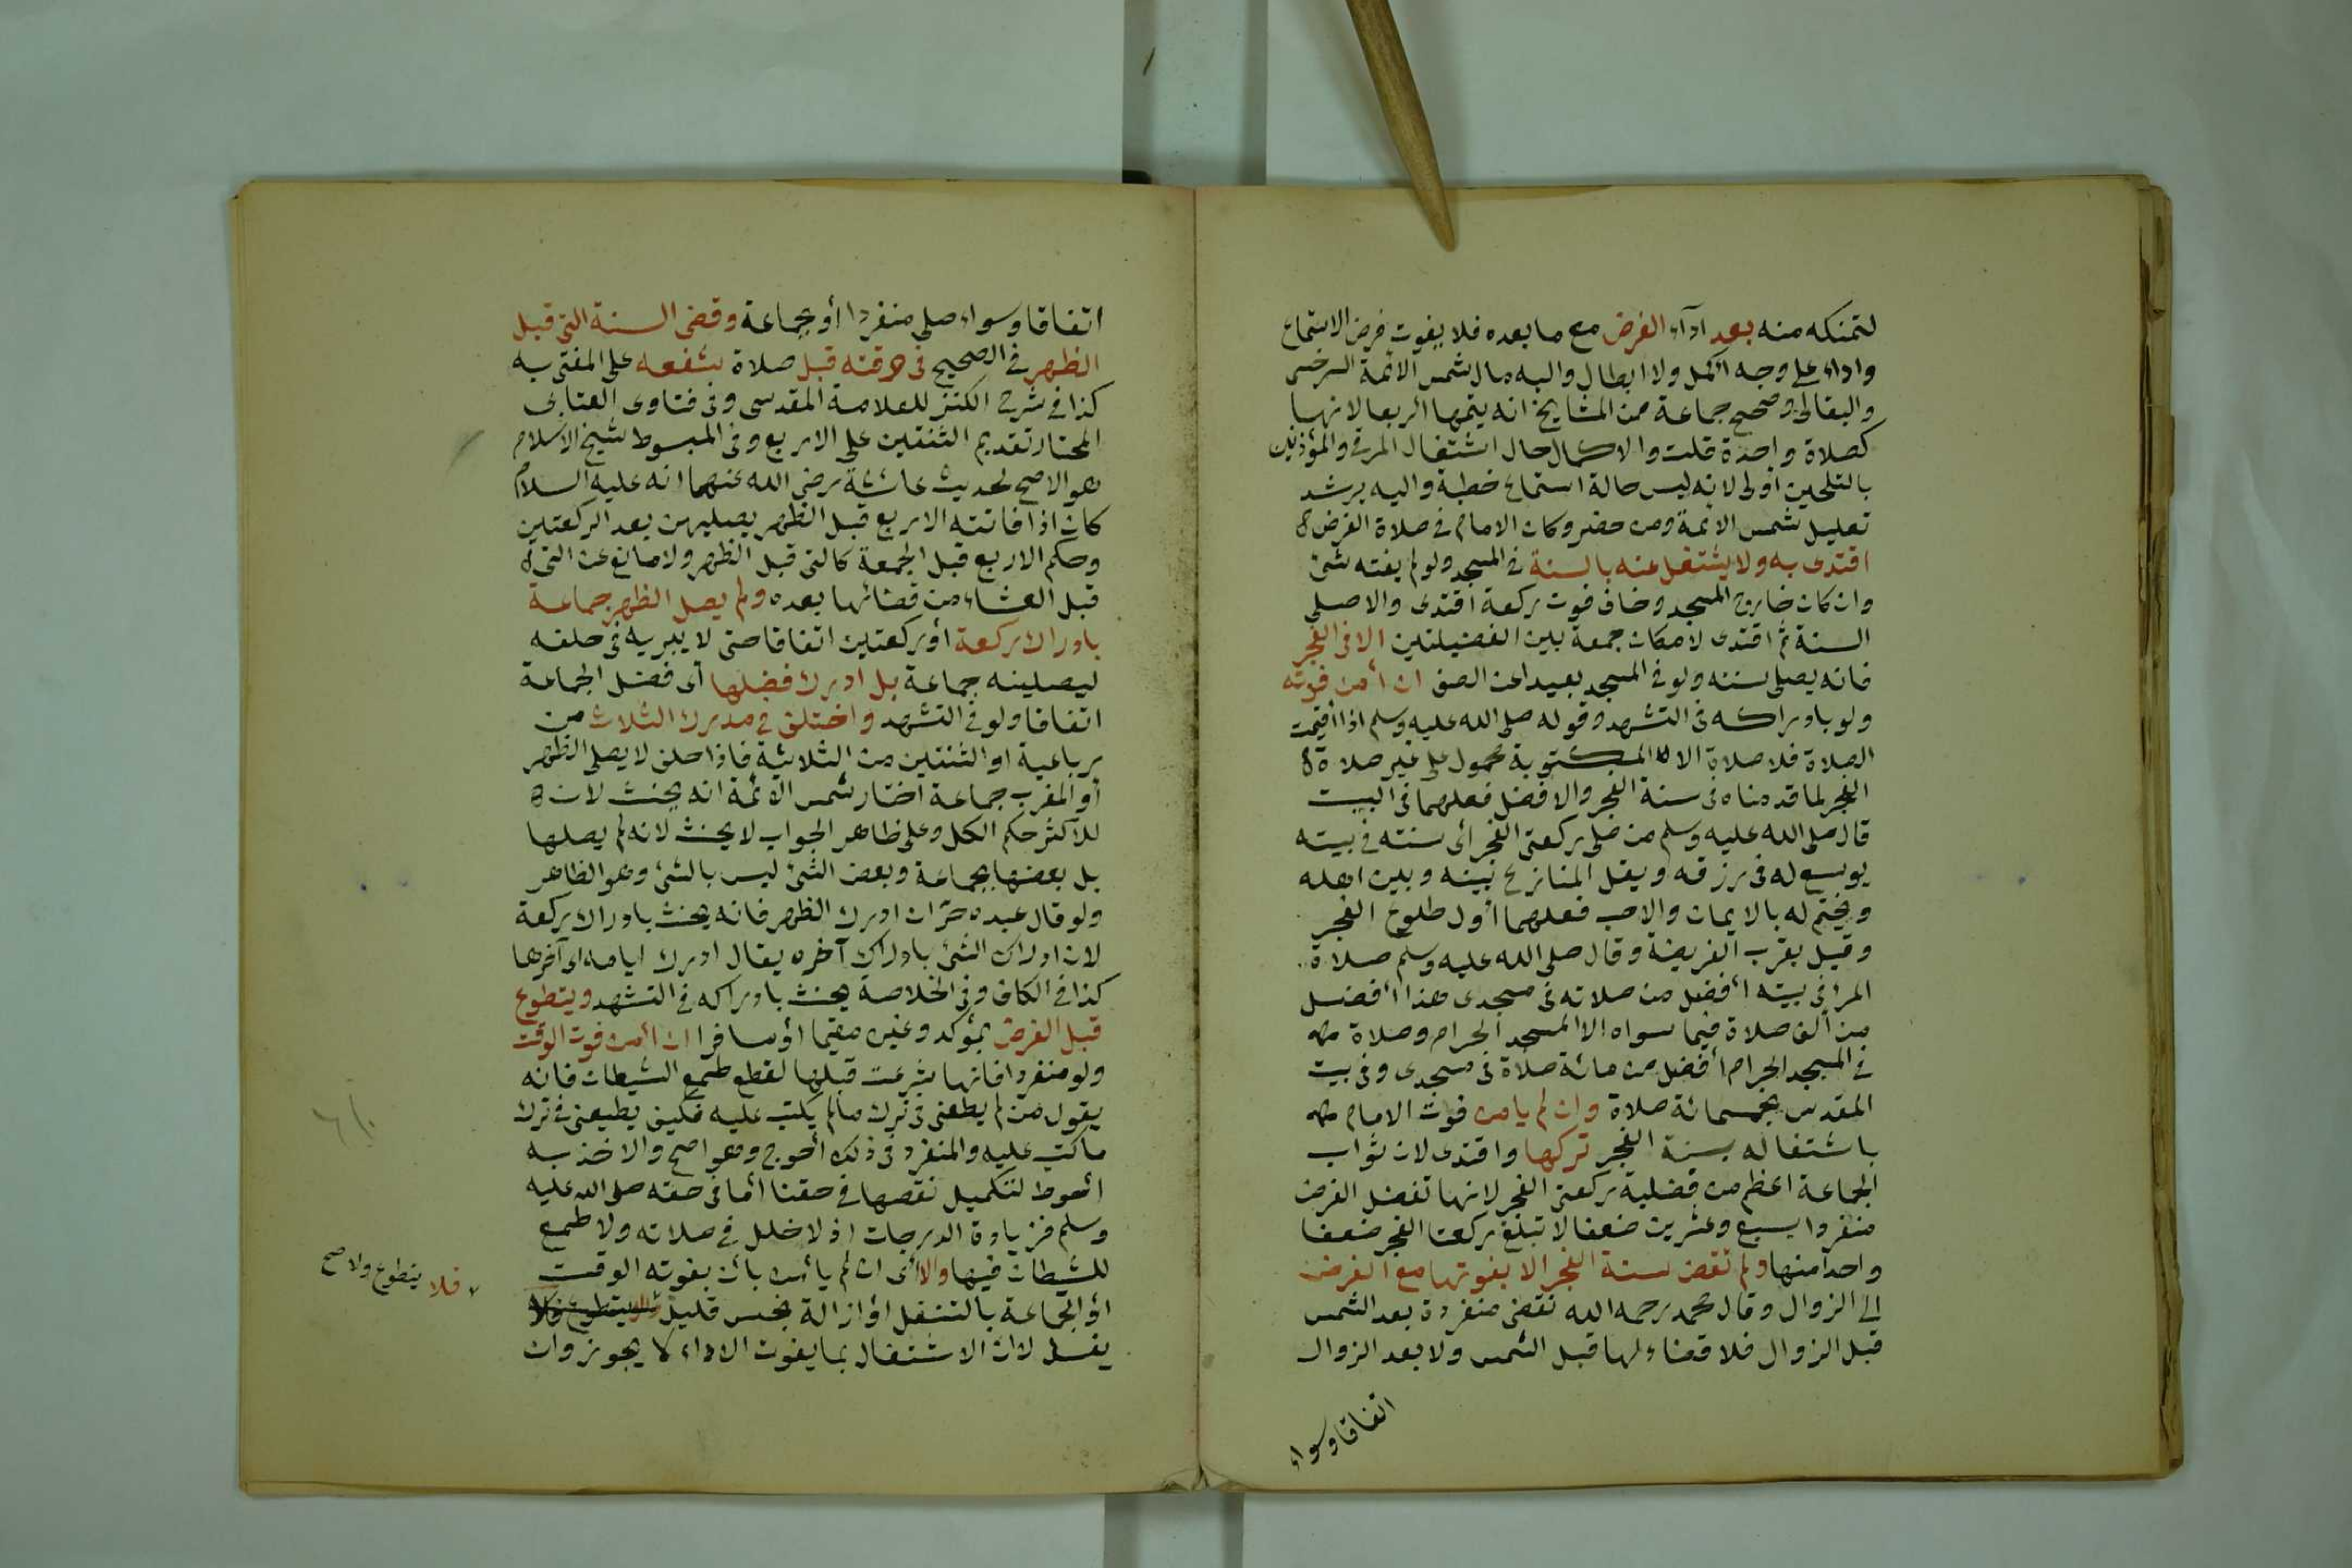 لتمكنه منه بعد ادآء الفرض مع ما بعده فلا يفوت فرض الاستماع
واداء على وجه اكمل ولا ابطال واليه مال شمس الائمة السرخسى
والبقالى وصحح جماعة من المشايخ انه يتمها اربعا لانها
كصلاة واحدة قلت والاكمال حال اشتغال المرقى والمؤذنين
بالتلحين أولى لانه ليس حالة استماع خطبة واليه يرشد
تعليل شمس الائمة ومن حضر وكان الامام فى صلاة الفرض
اقتدى به ولا يشتغل عنه بالسنة فى المسجد ولو لم يفته شئ
وان كان خارج المسجد وخاف فوت ركعة اقتدى والا صلى
السنة ثم اقتدى لامكان جمعه بين الفضيلتين الا فى الفجر
فانه يصلى سنته ولو فى المسجد بعيدا عن الصف ان أمن فوته
ولو بادراكه فى التشهد وقوله صلى الله عليه وسلم اذا أقيمت
الصلاة فلا صلاة الا المكتوبة محمول على غير صلاة
الفجر لما قدمناه فى سنة الفجر والافضل فعلهما فى البيت
قال صلى الله عليه وسلم من صلى ركعتى الفجر أى سنته فى بيته
يوسع له فى رزقه ويقل المنازع بينه وبين اهله
ويختم له بالايمان والاحب فعلهما أول طلوع الفجر
وقيل بقرب الفريضة وقال صلى الله عليه وسلم صلاة
المرء فى بيته أفضل من صلاته فى مسجدى هذا أفضل
من ألف صلاة فيما سواه الا المسجد الحرام وصلاة
فى المسجد الحرام أفضل من مائة صلاة فى مسجدى وفى بيت
المقدس بخمسمائة صلاة وان لم يامن فوت الامام
باشتغاله بسنة الفجر تركها واقتدى لان ثواب
الجماعة اعظم من فضلية ركعتى الفجر لانها تفضل الفرض
منفردا بسبع وعشرين ضعفا لا تبلغ ركعتا الفجر ضعفا
واحدا منها ولم تقض سنة الفجر الا بفوتها مع الفرض
الى الزوال وقال محمد رحمه الله تقضى منفردة بعد الشمس
قبل الزوال فلا قضاء لها قبل الشمس ولا بعد الزوال
اتفاقا وسواء
اتفاقا وسواء صلى منفردا أو بجماعة وقضى السنة التى قبل
الظهر فى الصحيح فى وقته قبل صلاة شفعه على المفتى به
كذا فى شرح الكنز للعلامة المقدسى وفى فتاوى العتابى
المختار تقديم الثنتين على الاربع وفى المبسوط لشيخ الاسلام
هو الاصح لحديث عائشة رضى الله عنهما انه عليه السلام
كان اذا فاتته الاربع قبل الظهر يصليهن بعد الركعتين
وحكم الاربع قبل الجمعة كالتى قبل الظهر ولا مانع عن التى
قبل العشاء من قضائها بعده ولم يصل الظهر جماعة
بادراك ركعة أو ركعتين اتفاقا حتى لا يبر به فى حلفه
ليصلينه جماعة بل ادرك فضلها أى فضل الجماعة
اتفاقا ولو فى التشهد واختلف فى مدرك الثلاث من
رباعية او الثنتين من الثلاثية فاذا حلف لا يصلى الظهر
أو المغرب جماعة اختار شمس الائمة انه يحنث لان
للاكثر حكم الكل وعلى ظاهر الجواب لا يحنث لانه لم يصلها
بل بعضها بجماعة وبعض الشئ ليس بالشئ وهو الظاهر
ولو قال عبده حر ان ادرك الظهر فانه يحنث بادراك ركعة
لان ادراك الشئ بادراك آخره يقال ادرك ايامه اى آخرها
كذا فى الكافى وفى الخلاصة يحنث بادراكه فى التشهد ويتطوع
قبل الفرض بمؤكد وغيره مقيما أو مسافرا ان أمن فوت الوقت
ولو منفردا فانها شرعت قبلها لقطع طمع الشيطان فانه
يقول من لم يطعنى فى ترك مالم يكتب عليه فكيف يطيعنى فى ترك
ما كتب عليه والمنفرد فى ذلك أحوج وهو اصح والاخذ به
أحوط لتكميل نقصها فى حقنا أما فى حقه صلى الله عليه
وسلم فزيادة الدرجات اذ لا خلل فى صلاته ولا طمع
للشيطان فيها والا أى ان لم يأمن بأن يفوته الوقت
أو الجماعة بالتنفل أو ازالة نجس قليل
فلا يتطوع ولا صح
يغسل لان الاشتغال بما يفوت الاداء لا يجوز وان